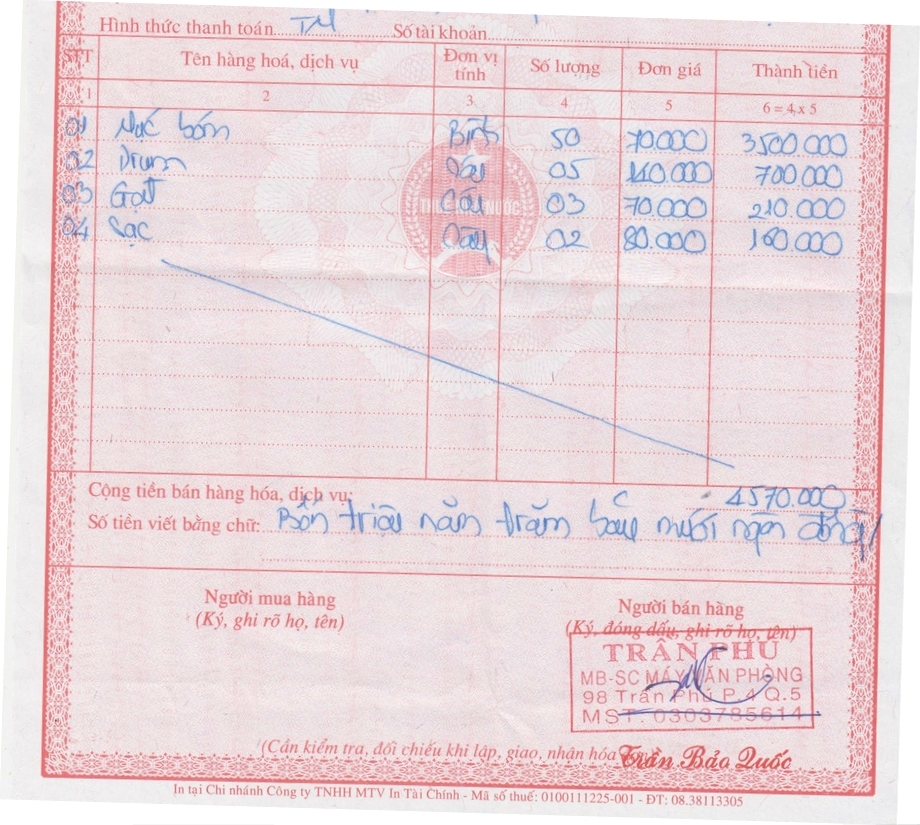 Hình thức thanh toán TM Số tài khoản
STT Tên hàng hoá, dịch vụ Đơn vị tính Số lượng Đơn giá Thành tiền
1 2 3 4 5 6 = 4 x 5
01 Mực bơm Bình 50 70.000 3500.000
02 Drum 05 140.000 700.000
03 Gạt Cái 03 70.000 210.000
04 Sạc Cây 02 80.000 160.000
Cộng tiền bán hàng hóa, dịch vụ: 4570.000
Số tiền viết bằng chữ: Bốn triệu năm trăm bảy mươi ngàn đồng
Người mua hàng
(Ký, ghi rõ họ, tên)
Người bán hàng
(Ký, đóng dấu, ghi rõ họ, tên)
TRẦN PHÚ
MB-SC MÁY VĂN PHÒNG
98 Trần Phú P.4 Q.5
MST: 0303785614
(Cần kiểm tra, đối chiếu khi lập, giao, nhận hóa
Trần Bảo Quốc
In tại Chi nhánh Công ty TNHH MTV In Tài Chính - Mã số thuế: 0100111225-001 - ĐT: 08.38113305